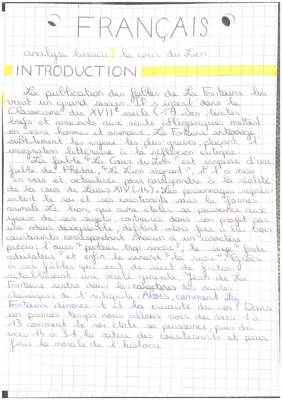 FRANÇAIS
analyse linéaire : la cour du Lion
INTRODUCTION
La publication des fables de La Fontaine lui
vaut un grand succès. Il s'inscrit dans le
Classicisme du XVIIe siècle (-17). Ses textes
brefs et amusants aux récits allégoriques mettent
en scène hommes et animaux. La Fontaine interroge
subtilement les enjeux les plus graves, plaçant l'
imagination littéraire à la réflexion critique.
La fable "La Cour du Lion" est inspirée d'une
fable de Phèdre, "Le Lion régnant", il l'a mise
en vers et actualisée pour correspondre à la réalité
de la cour de Louis XIV (-14). Les personnages représ-
entent le roi et ses courtisans sous la forme
animale. Le Lion, qui aime étaler sa puissance aux
yeux de ses sujets, contrarié dans son projet par
une odeur désagréable, défiant alors face à lui trois
courtisans correspondant chacun à un caractère
précis : l'ours "parleur trop sincère", le singe "fade
adulateur" et enfin le renard "la ruse". Grâce
à ses fables qui sont de récit de fiction
Jean de La
Fontaine entre dans les caractères de toutes
Alors, comment La
Fontaine dénonce-t-il la cruauté du roi ? Dans
un premier temps nous allons voir des vers 1 à
13 comment le roi étale sa puissance, puis du
vers 14 à 31, la satire des courtisans et pour
finir la morale de l'histoire.